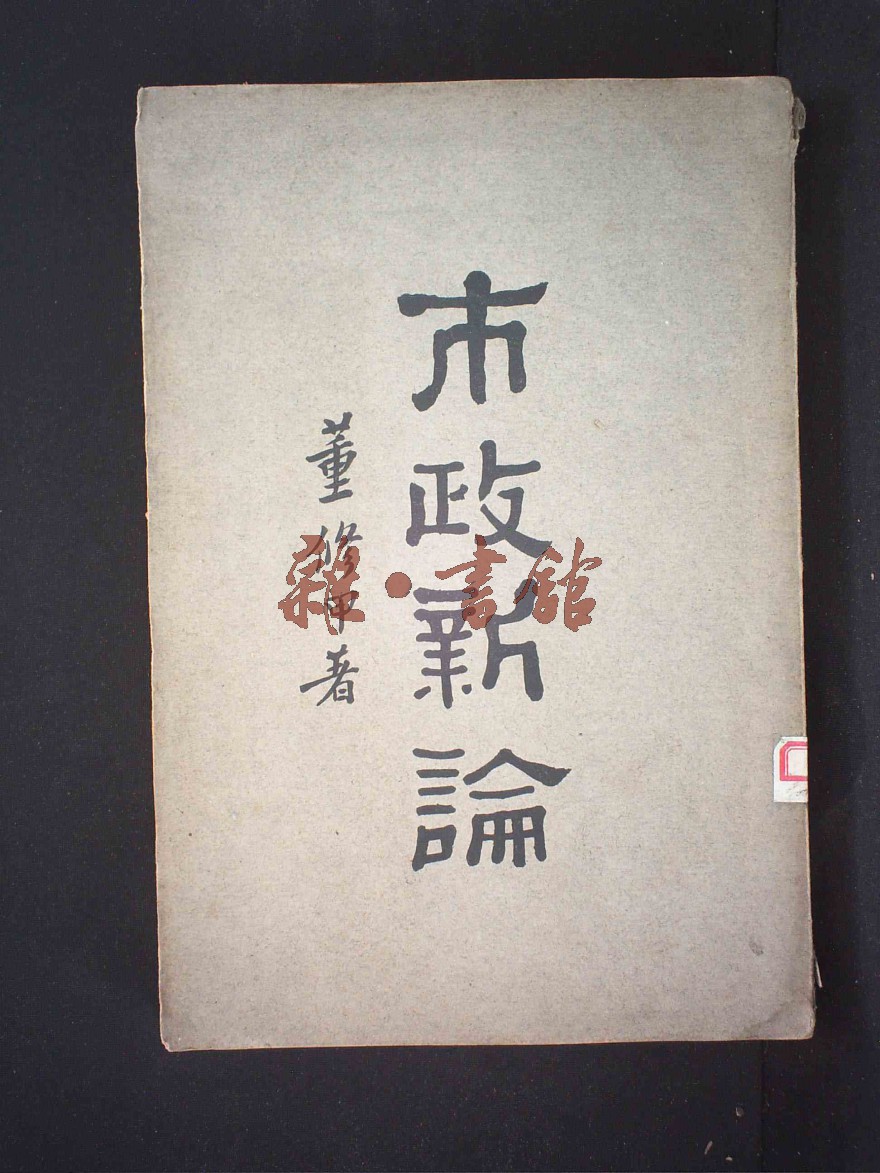 市政新論
董修甲著
雜·書館